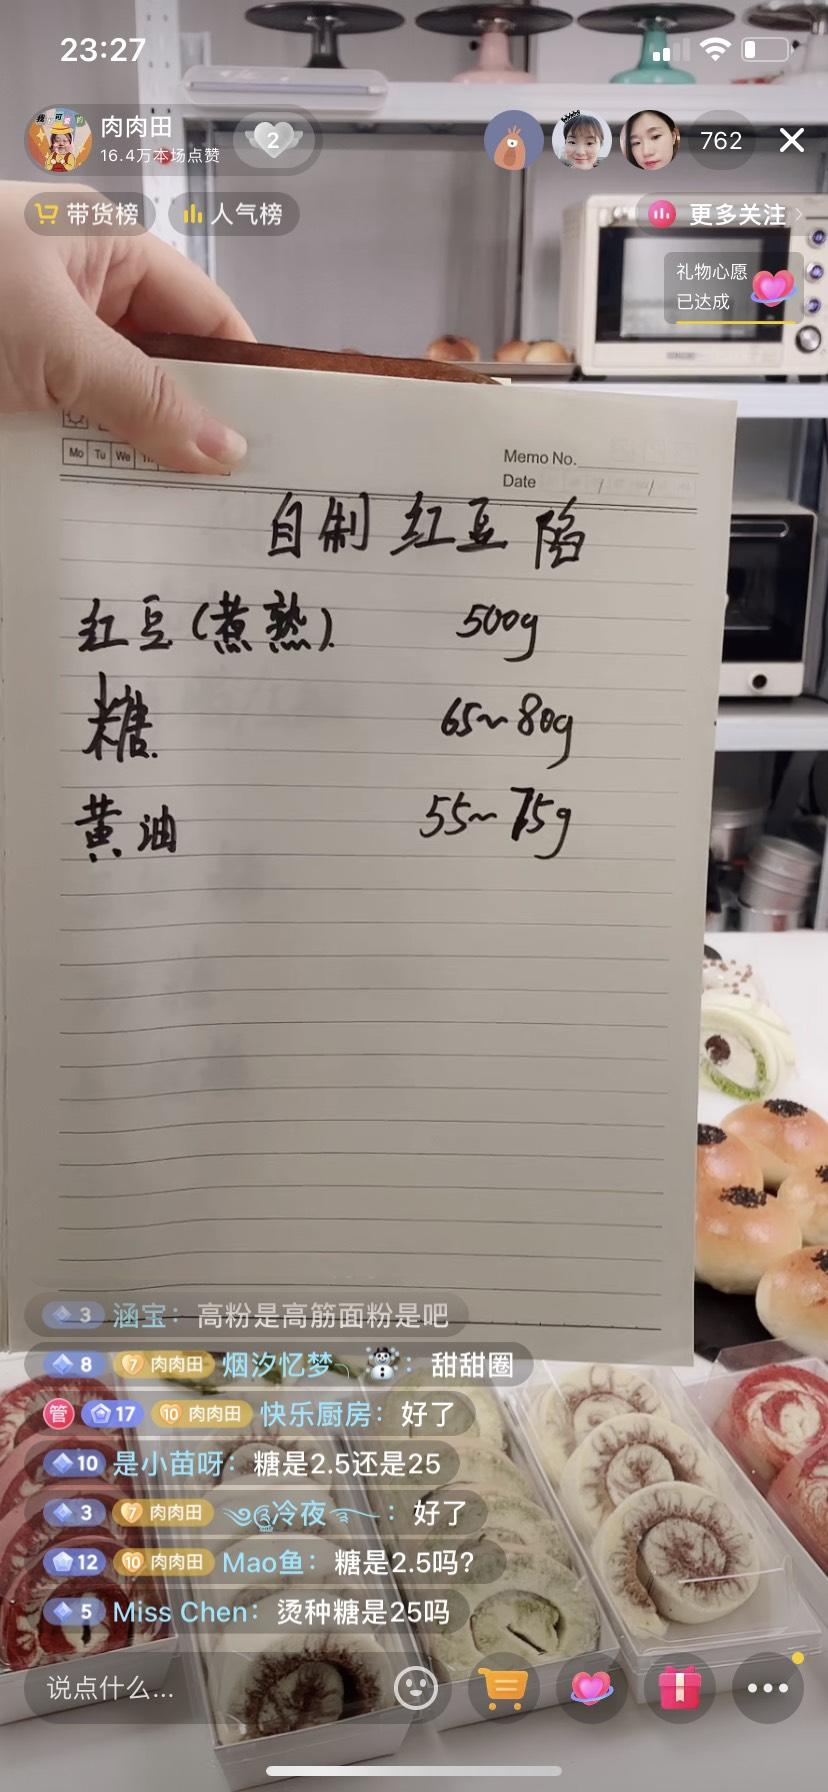 23:27
肉肉田
16.4万本场点赞
2
762
带货榜
人气榜
更多关注
礼物心愿
已达成
Mo Tu We
Memo No.
Date / /
自制红豆陷
红豆(煮熟) 500g
糖 65~80g
黄油 55~75g
3 涵宝：高粉是高筋面粉是吧
8 7 肉肉田 烟汐忆梦 ：甜甜圈
管 17 10 肉肉田 快乐厨房：好了
10 是小苗呀：糖是2.5还是25
3 7 肉肉田 冷夜 ：好了
12 10 肉肉田 Mao鱼：糖是2.5吗?
5 Miss Chen：烫种糖是25吗
说点什么...